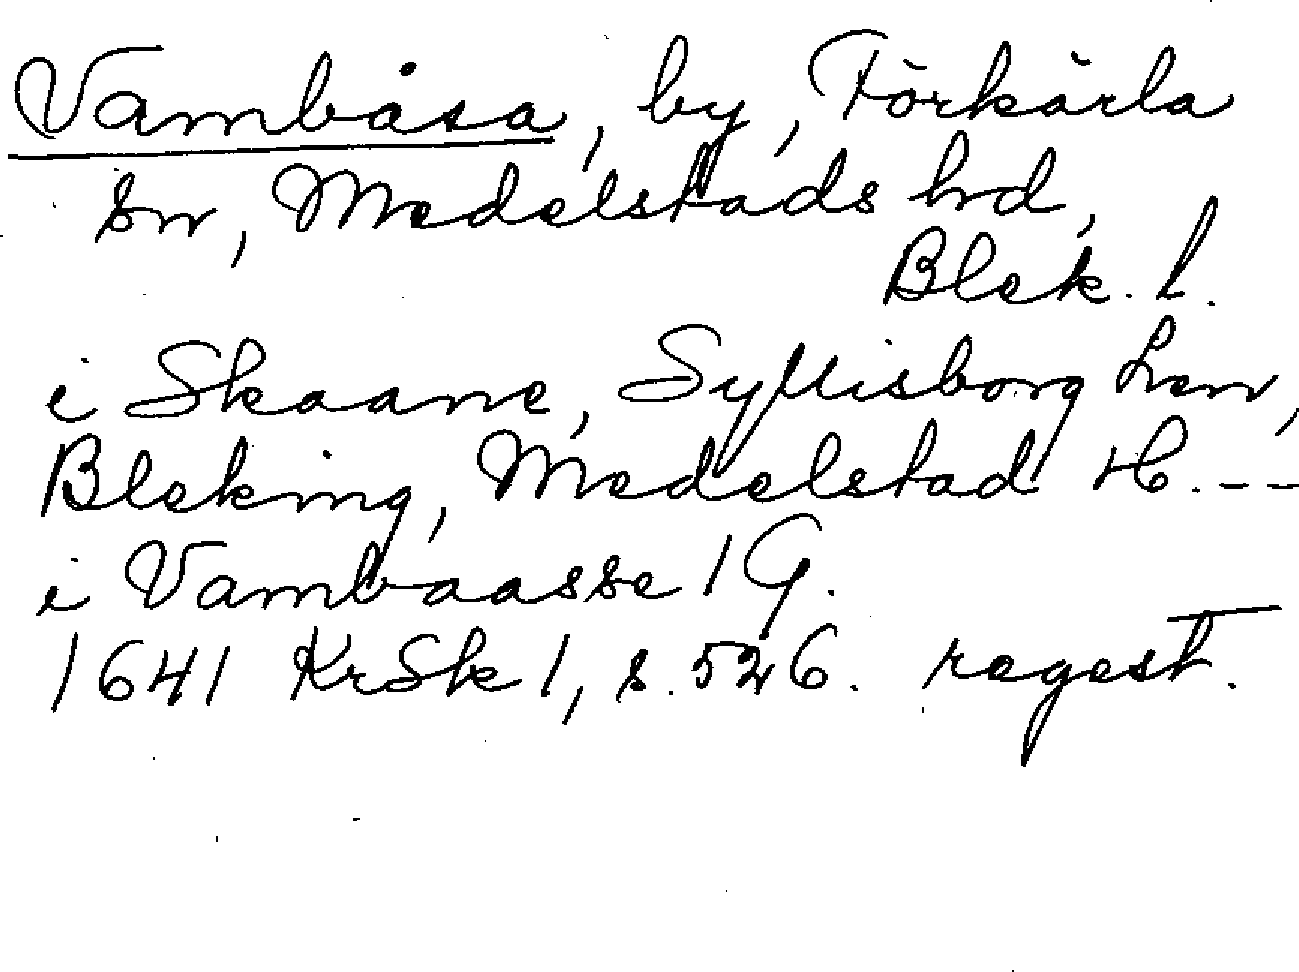 Vambåsa, by, Förkärla
sn, Medelstads hd,
Blek. l.
i Skaane, Syllisborg Len,
Bleking, Medelstad H. --
i Vambaasse 1 G.
1641 KrSk 1, s. 526. regest.